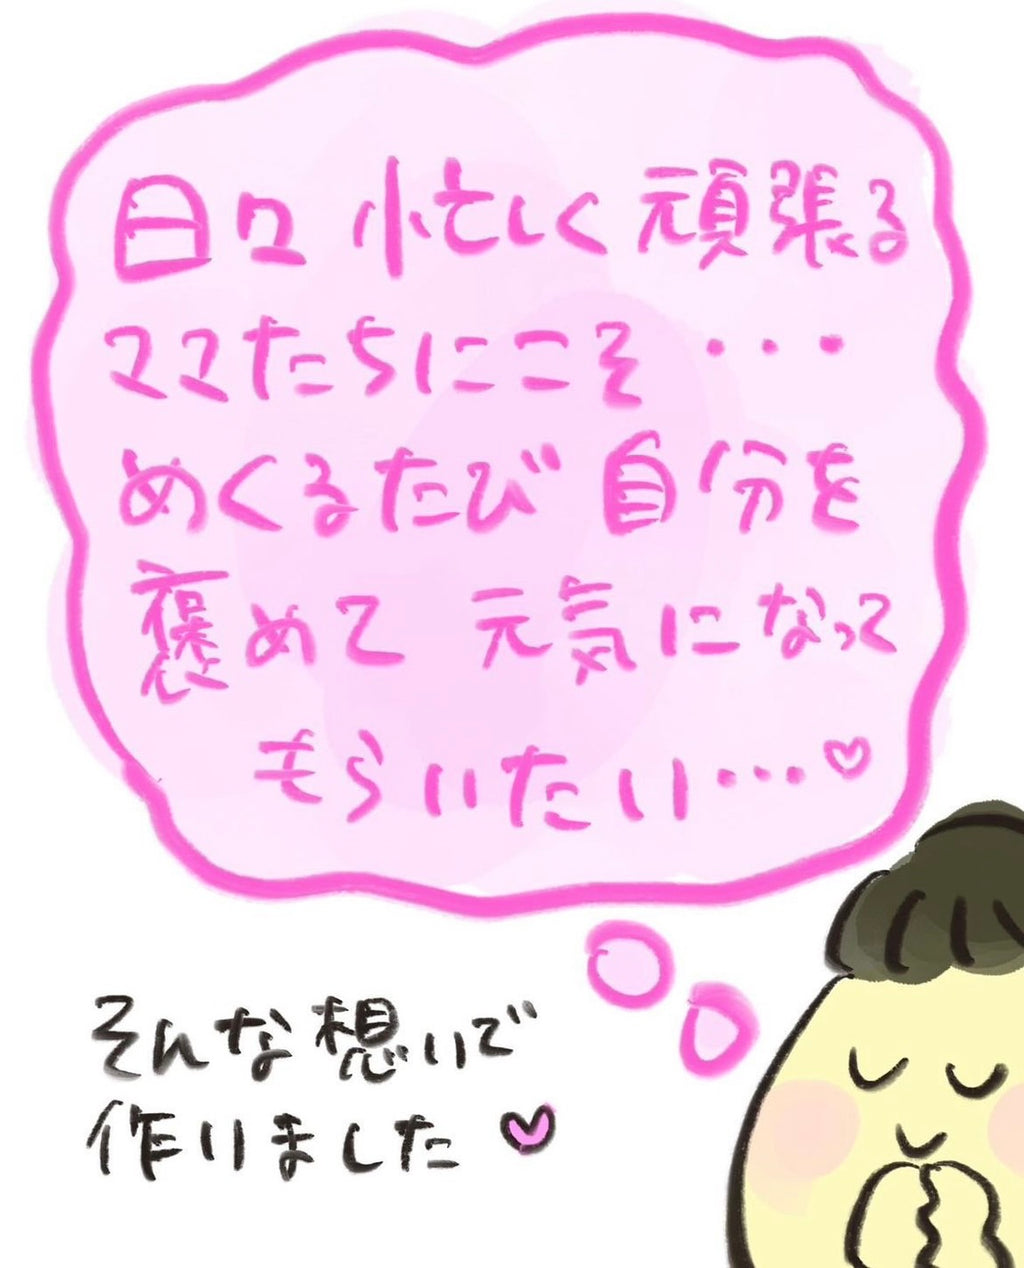 日々 忙しく 頑張る
ママたちにこそ・・・
めくるたび 自分を
褒めて 元気になって
もらいたい…♡
そんな想いで
作りました♥